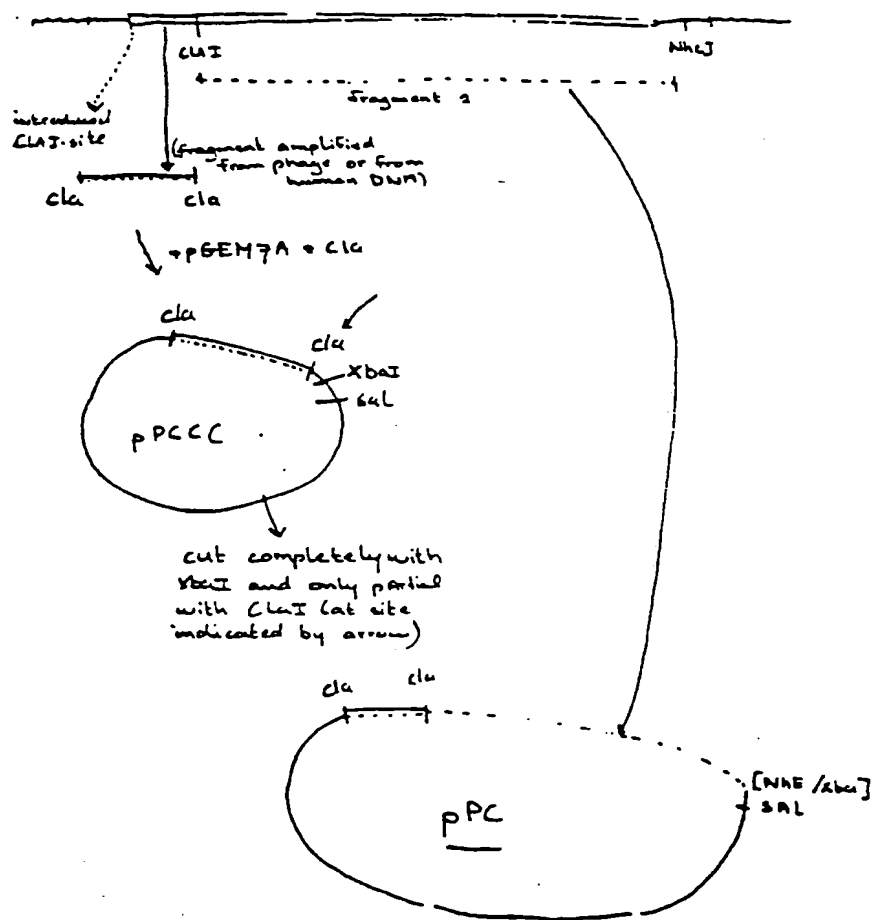 ClaI
NheI
fragment 2
introduced
ClaI-site
(fragment amplified
from phage or from
human DNA)
cla
cla
+pGEM7A + Cla
cla
cla
XbaI
sal
pPCCC
cut completely with
XbaI and only partial
with ClaI (at site
indicated by arrow)
cla
cla
[NhE/xba]
SAL
pPC